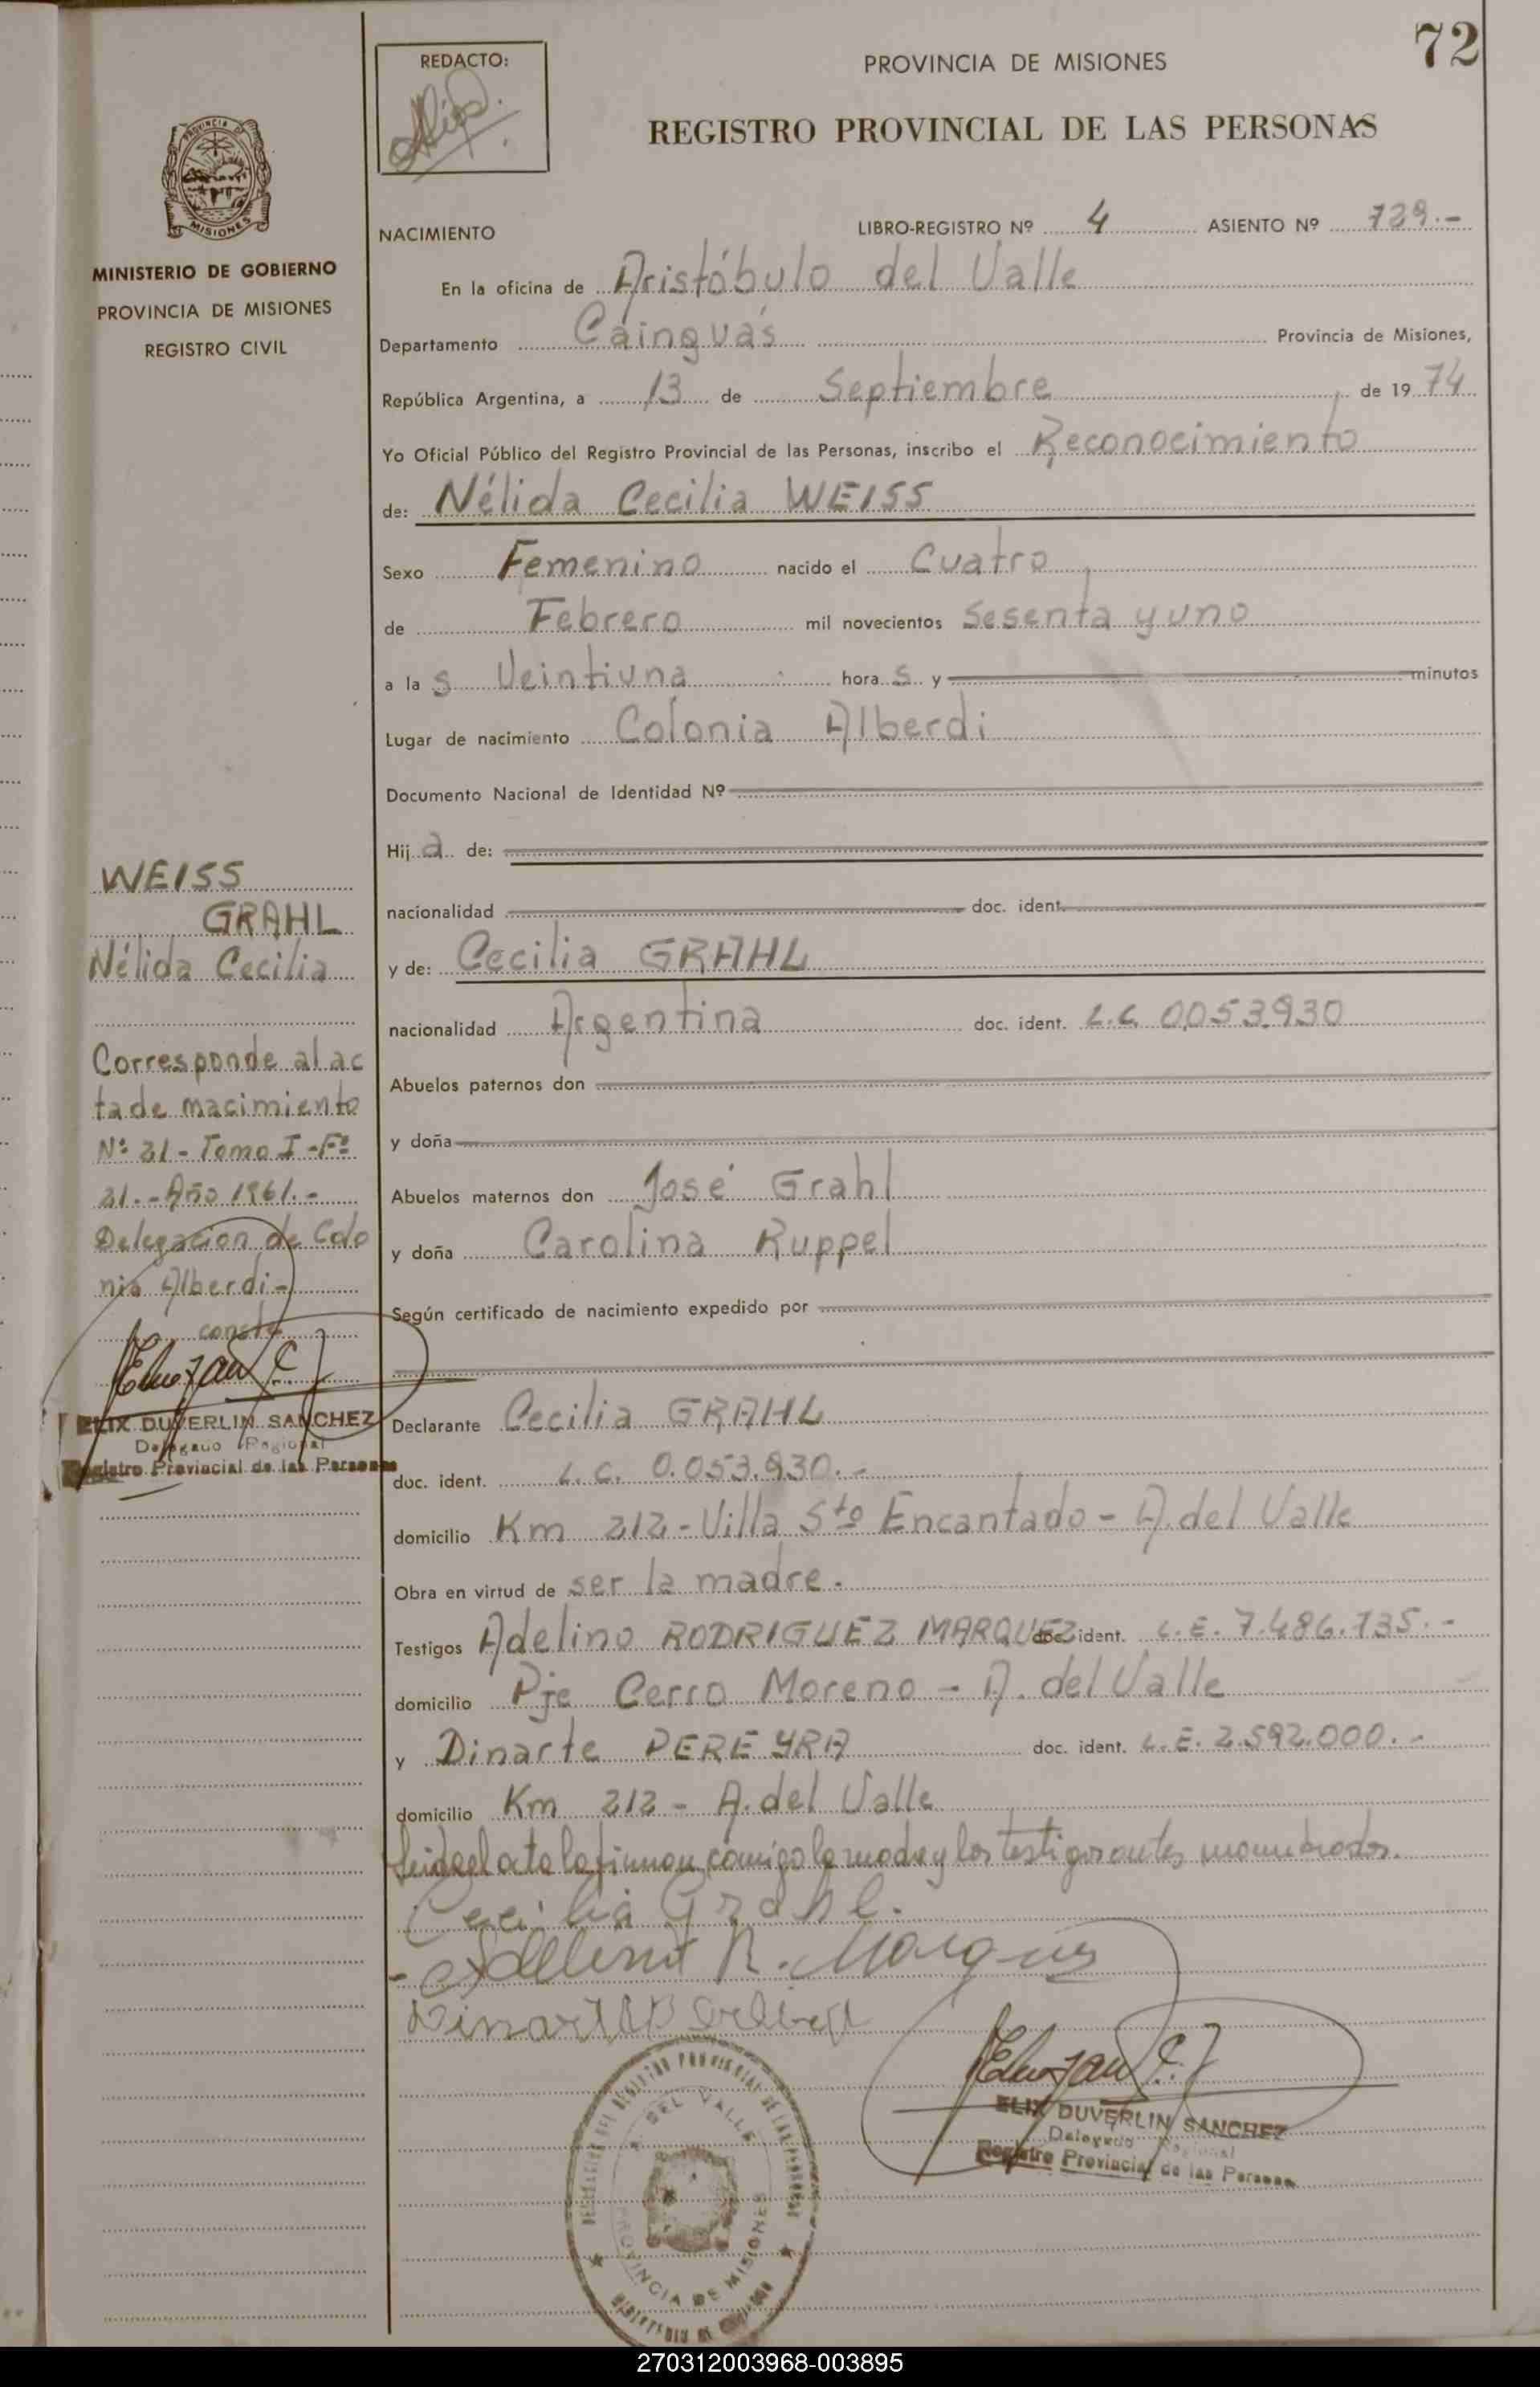 72
REDACTO:
PROVINCIA DE MISIONES
REGISTRO PROVINCIAL DE LAS PERSONAS
PROVINCIA DE
MISIONES
MINISTERIO DE GOBIERNO
PROVINCIA DE MISIONES
REGISTRO CIVIL
NACIMIENTO LIBRO-REGISTRO Nº 4 ASIENTO Nº 729.-
En la oficina de Aristóbulo del Valle
Departamento Cainguás Provincia de Misiones,
República Argentina, a 13 de Septiembre de 1974
Yo Oficial Público del Registro Provincial de las Personas, inscribo el Reconocimiento
de: Nélida Cecilia WEISS
Sexo Femenino nacido el Cuatro
de Febrero mil novecientos Sesenta y uno
a las Veintiuna horas y minutos
Lugar de nacimiento Colonia Alberdi
Documento Nacional de Identidad Nº
Hija de:
nacionalidad doc. ident.
y de: Cecilia GRAHL
nacionalidad Argentina doc. ident. L.C. 0.053.930
Abuelos paternos don
y doña
Abuelos maternos don José Grahl
y doña Carolina Ruppel
Según certificado de nacimiento expedido por
Declarante Cecilia GRAHL
doc. ident. L.C. 0.053.930.-
domicilio Km 212 - Villa Sto Encantado - A. del Valle
Obra en virtud de ser la madre.
Testigos Adelino RODRIGUEZ MARQUEZ doc. ident. L.E. 7.486.735.-
domicilio Pje Cerro Moreno - A. del Valle
y Dinarte PEREYRA doc. ident. L.E. 2.592.000.-
domicilio Km 212 - A. del Valle
Leida el acta la firman conmigo la madre y los testigos antes nombrados.
Cecilia Grahl.
Adelino R. Marques
WEISS
GRAHL
Nélida Cecilia
Corresponde al ac
ta de nacimiento
Nº 21 - Tomo I - Fº
21.- Año 1961.-
Delegación de Colo
nia Alberdi-
conste
ELIX DUVERLIN SANCHEZ
Delegado Regional
Registro Provincial de las Personas
ELIX DUVERLIN SANCHEZ
Delegado Regional
Registro Provincial de las Personas
DELEGACION DEL REGISTRO PROVINCIAL DE LAS PERSONAS
A. DEL VALLE
PROVINCIA DE MISIONES
MINISTERIO DE GOBIERNO
270312003968-003895